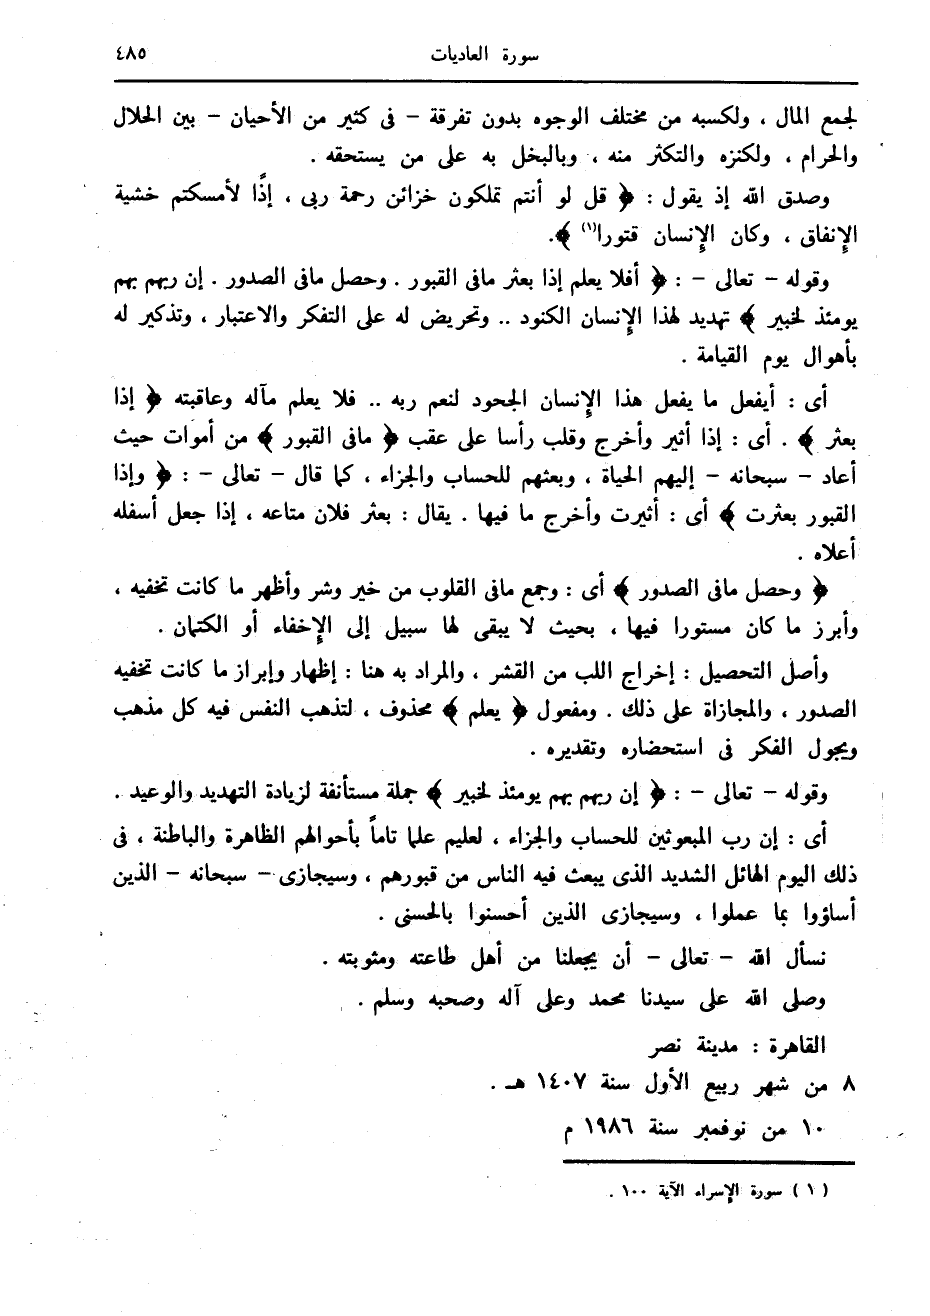 سورة العاديات ٤٨٥
لجمع المال ، ولكسبه من مختلف الوجوه بدون تفرقة – فى كثير من الأحيان – بين الحلال
والحرام ، ولكنزه والتكثر منه ، وبالبخل به على من يستحقه .
وصدق الله إذ يقول : ﴿ قل لو أنتم تملكون خزائن رحمة ربى ، إذًا لأمسكتم خشية
الإنفاق ، وكان الإنسان قتورا(١) ﴾.
وقوله – تعالى – : ﴿ أفلا يعلم إذا بعثر مافى القبور . وحصل مافى الصدور . إن ربهم بهم
يومئذ لخبير ﴾ تهديد لهذا الإنسان الكنود .. وتحريض له على التفكر والاعتبار ، وتذكير له
بأهوال يوم القيامة .
أى : أيفعل ما يفعل هذا الإنسان الجحود لنعم ربه .. فلا يعلم مآله وعاقبته ﴿ إذا
بعثر ﴾ . أى : إذا أثير وأخرج وقلب رأسا على عقب ﴿ مافى القبور ﴾ من أموات حيث
أعاد – سبحانه – إليهم الحياة ، وبعثهم للحساب والجزاء ، كما قال – تعالى – : ﴿ وإذا
القبور بعثرت ﴾ أى : أثيرت وأخرج ما فيها . يقال : بعثر فلان متاعه ، إذا جعل أسفله
أعلاه .
﴿ وحصل مافى الصدور ﴾ أى : وجمع مافى القلوب من خير وشر وأظهر ما كانت تخفيه ،
وأبرز ما كان مستورا فيها ، بحيث لا يبقى لها سبيل إلى الإخفاء أو الكتمان .
وأصل التحصيل : إخراج اللب من القشر ، والمراد به هنا : إظهار وإبراز ما كانت تخفيه
الصدور ، والمجازاة على ذلك . ومفعول ﴿ يعلم ﴾ محذوف ، لتذهب النفس فيه كل مذهب
ويجول الفكر فى استحضاره وتقديره .
وقوله – تعالى – : ﴿ إن ربهم بهم يومئذ لخبير ﴾ جملة مستأنفة لزيادة التهديد والوعيد .
أى : إن رب المبعوثين للحساب والجزاء ، لعليم علما تاماً بأحوالهم الظاهرة والباطنة ، فى
ذلك اليوم الهائل الشديد الذى يبعث فيه الناس من قبورهم ، وسيجازى – سبحانه – الذين
أساؤوا بما عملوا ، وسيجازى الذين أحسنوا بالحسنى .
نسأل الله – تعالى – أن يجعلنا من أهل طاعته ومثوبته .
وصلى الله على سيدنا محمد وعلى آله وصحبه وسلم .
القاهرة : مدينة نصر
٨ من شهر ربيع الأول سنة ١٤٠٧ هـ .
١٠ من نوفمبر سنة ١٩٨٦ م
( ١ ) سورة الإسراء الآية ١٠٠ .